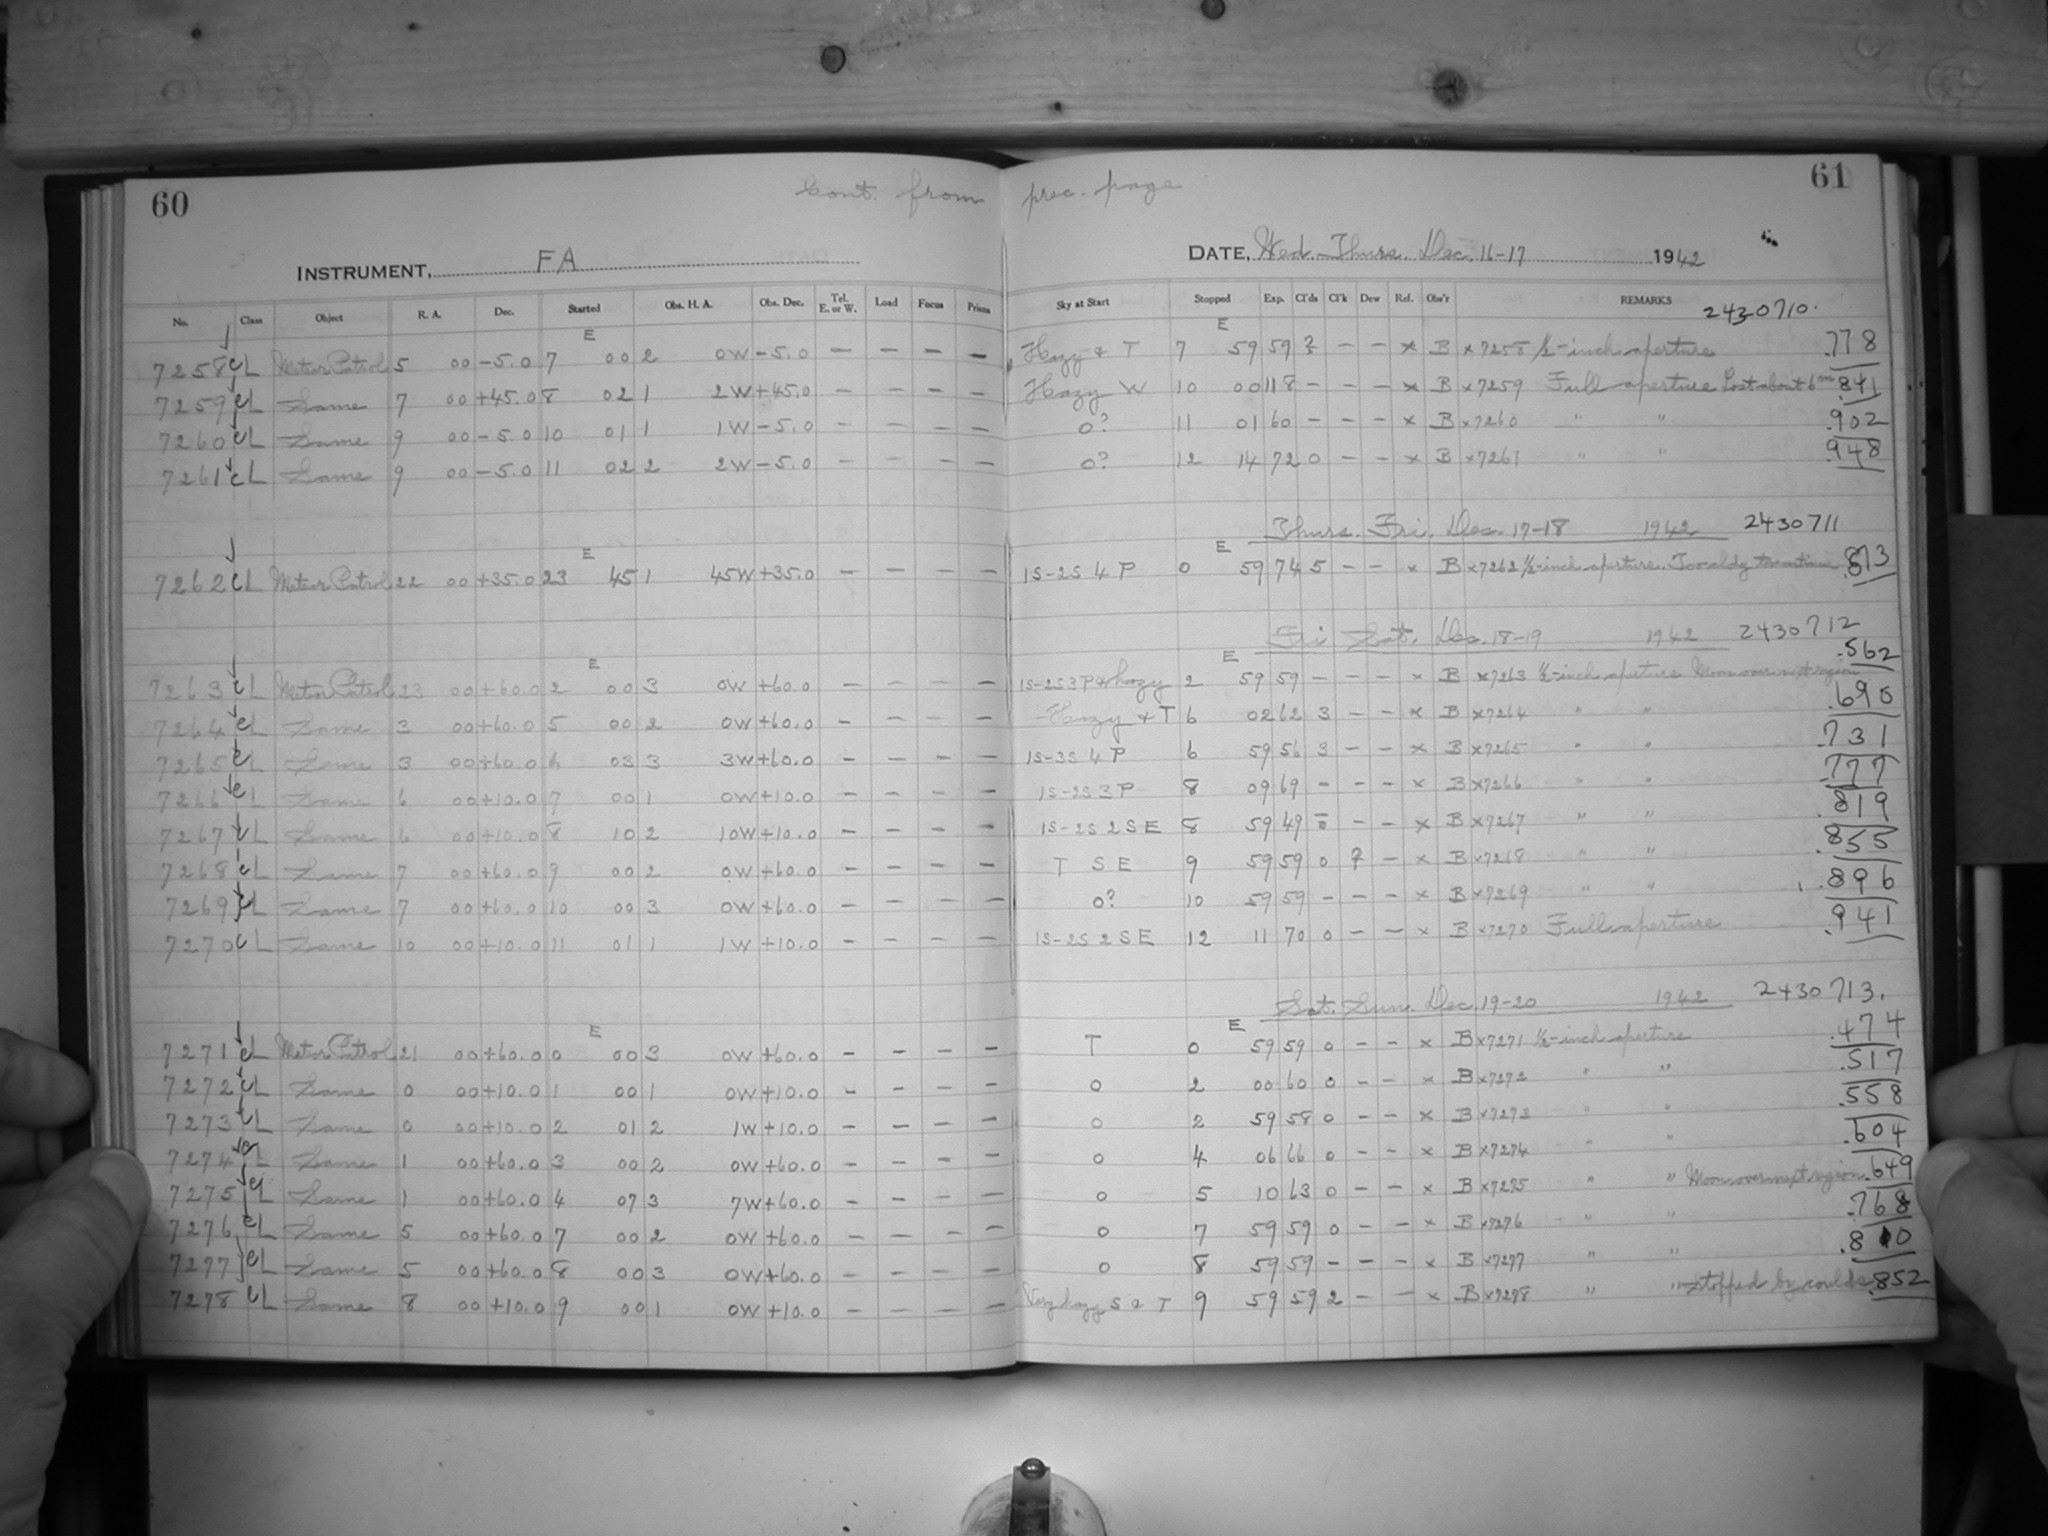 60
Cont. from prec. page
61
INSTRUMENT, FA
DATE, Wed.-Thurs. Dec. 16-17 1942
No. Class Object R. A. Dec. Started Obs. H. A. Obs. Dec. Tel. E. or W. Load Focus Prisms Sky at Start Stopped Exp. Cl'ds Cl'k Dew Ref. Obs'r REMARKS
2430710.
E E
7258 CL Meteor Patrol 5 00 -5.0 7 00 2 0W -5.0 — — — — Hazy & T 7 59 59 ? — — × B ×7258 1/2-inch aperture .778
7259 CL Same 7 00 +45.0 8 02 1 2W +45.0 — — — — Hazy W 10 00 118 — — — × B ×7259 Full aperture Lost about 6m .841
7260 CL Same 9 00 -5.0 10 01 1 1W -5.0 — — — — 0? 11 01 60 — — — × B ×7260 " " .902
7261 CL Same 9 00 -5.0 11 02 2 2W -5.0 — — — — 0? 12 14 72 0 — — × B ×7261 " " .948
Thurs. Fri. Dec. 17-18 1942 2430711
E E
7262 CL Meteor Patrol 22 00 +35.0 23 45 1 45W +35.0 — — — — 1S-2S 4 P 0 59 74 5 — — × B ×7262 1/2-inch aperture. .813
Fri Sat. Dec. 18-19 1942 2430712
E E
7263 CL Meteor Patrol 23 00 +60.0 2 00 3 0W +60.0 — — — — 1S-2S 3 P & hazy 2 59 59 — — — × B ×7263 1/2-inch aperture Moon over next region .562
7264 CL Same 3 00 +60.0 5 00 2 0W +60.0 — — — — Hazy & T 6 02 62 3 — — × B ×7264 " " .690
7265 CL Same 3 00 +60.0 6 03 3 3W +60.0 — — — — 1S-3S 4 P 6 59 56 3 — — × B ×7265 " " .731
7266 CL Same 6 00 +10.0 7 00 1 0W +10.0 — — — — 1S-2S 3 P 8 09 69 — — — × B ×7266 " " .777
7267 CL Same 6 00 +10.0 8 10 2 10W +10.0 — — — — 1S-2S 2 S E 8 59 49 0 — — × B ×7267 " " .819
7268 CL Same 7 00 +60.0 9 00 2 0W +60.0 — — — — T S E 9 59 59 0 ? — × B ×7268 " " .855
7269 CL Same 7 00 +60.0 10 00 3 0W +60.0 — — — — 0? 10 59 59 — — — × B ×7269 " " .896
7270 CL Same 10 00 +10.0 11 01 1 1W +10.0 — — — — 1S-2S 2 S E 12 11 70 0 — — × B ×7270 Full aperture .941
Sat. Sun. Dec. 19-20 1942 2430713.
E E
7271 CL Meteor Patrol 21 00 +60.0 0 00 3 0W +60.0 — — — — T 0 59 59 0 — — × B ×7271 1/2-inch aperture .474
7272 CL Same 0 00 +10.0 1 00 1 0W +10.0 — — — — 0 2 00 60 0 — — × B ×7272 " " .517
7273 CL Same 0 00 +10.0 2 01 2 1W +10.0 — — — — 0 2 59 58 0 — — × B ×7273 " " .558
7274 CL Same 1 00 +60.0 3 00 2 0W +60.0 — — — — 0 4 06 66 0 — — × B ×7274 " .604
7275 CL Same 1 00 +60.0 4 07 3 7W +60.0 — — — — 0 5 10 63 0 — — × B ×7275 " " Moon over next region .649
7276 CL Same 5 00 +60.0 7 00 2 0W +60.0 — — — — 0 7 59 59 0 — — × B ×7276 " " .768
7277 CL Same 5 00 +60.0 8 00 3 0W +60.0 — — — — 0 8 59 59 — — — × B ×7277 " " .810
7278 CL Same 8 00 +10.0 9 00 1 0W +10.0 — — — — Very hazy S & T 9 59 59 2 — — × B ×7278 " " Stopped by coulds .852